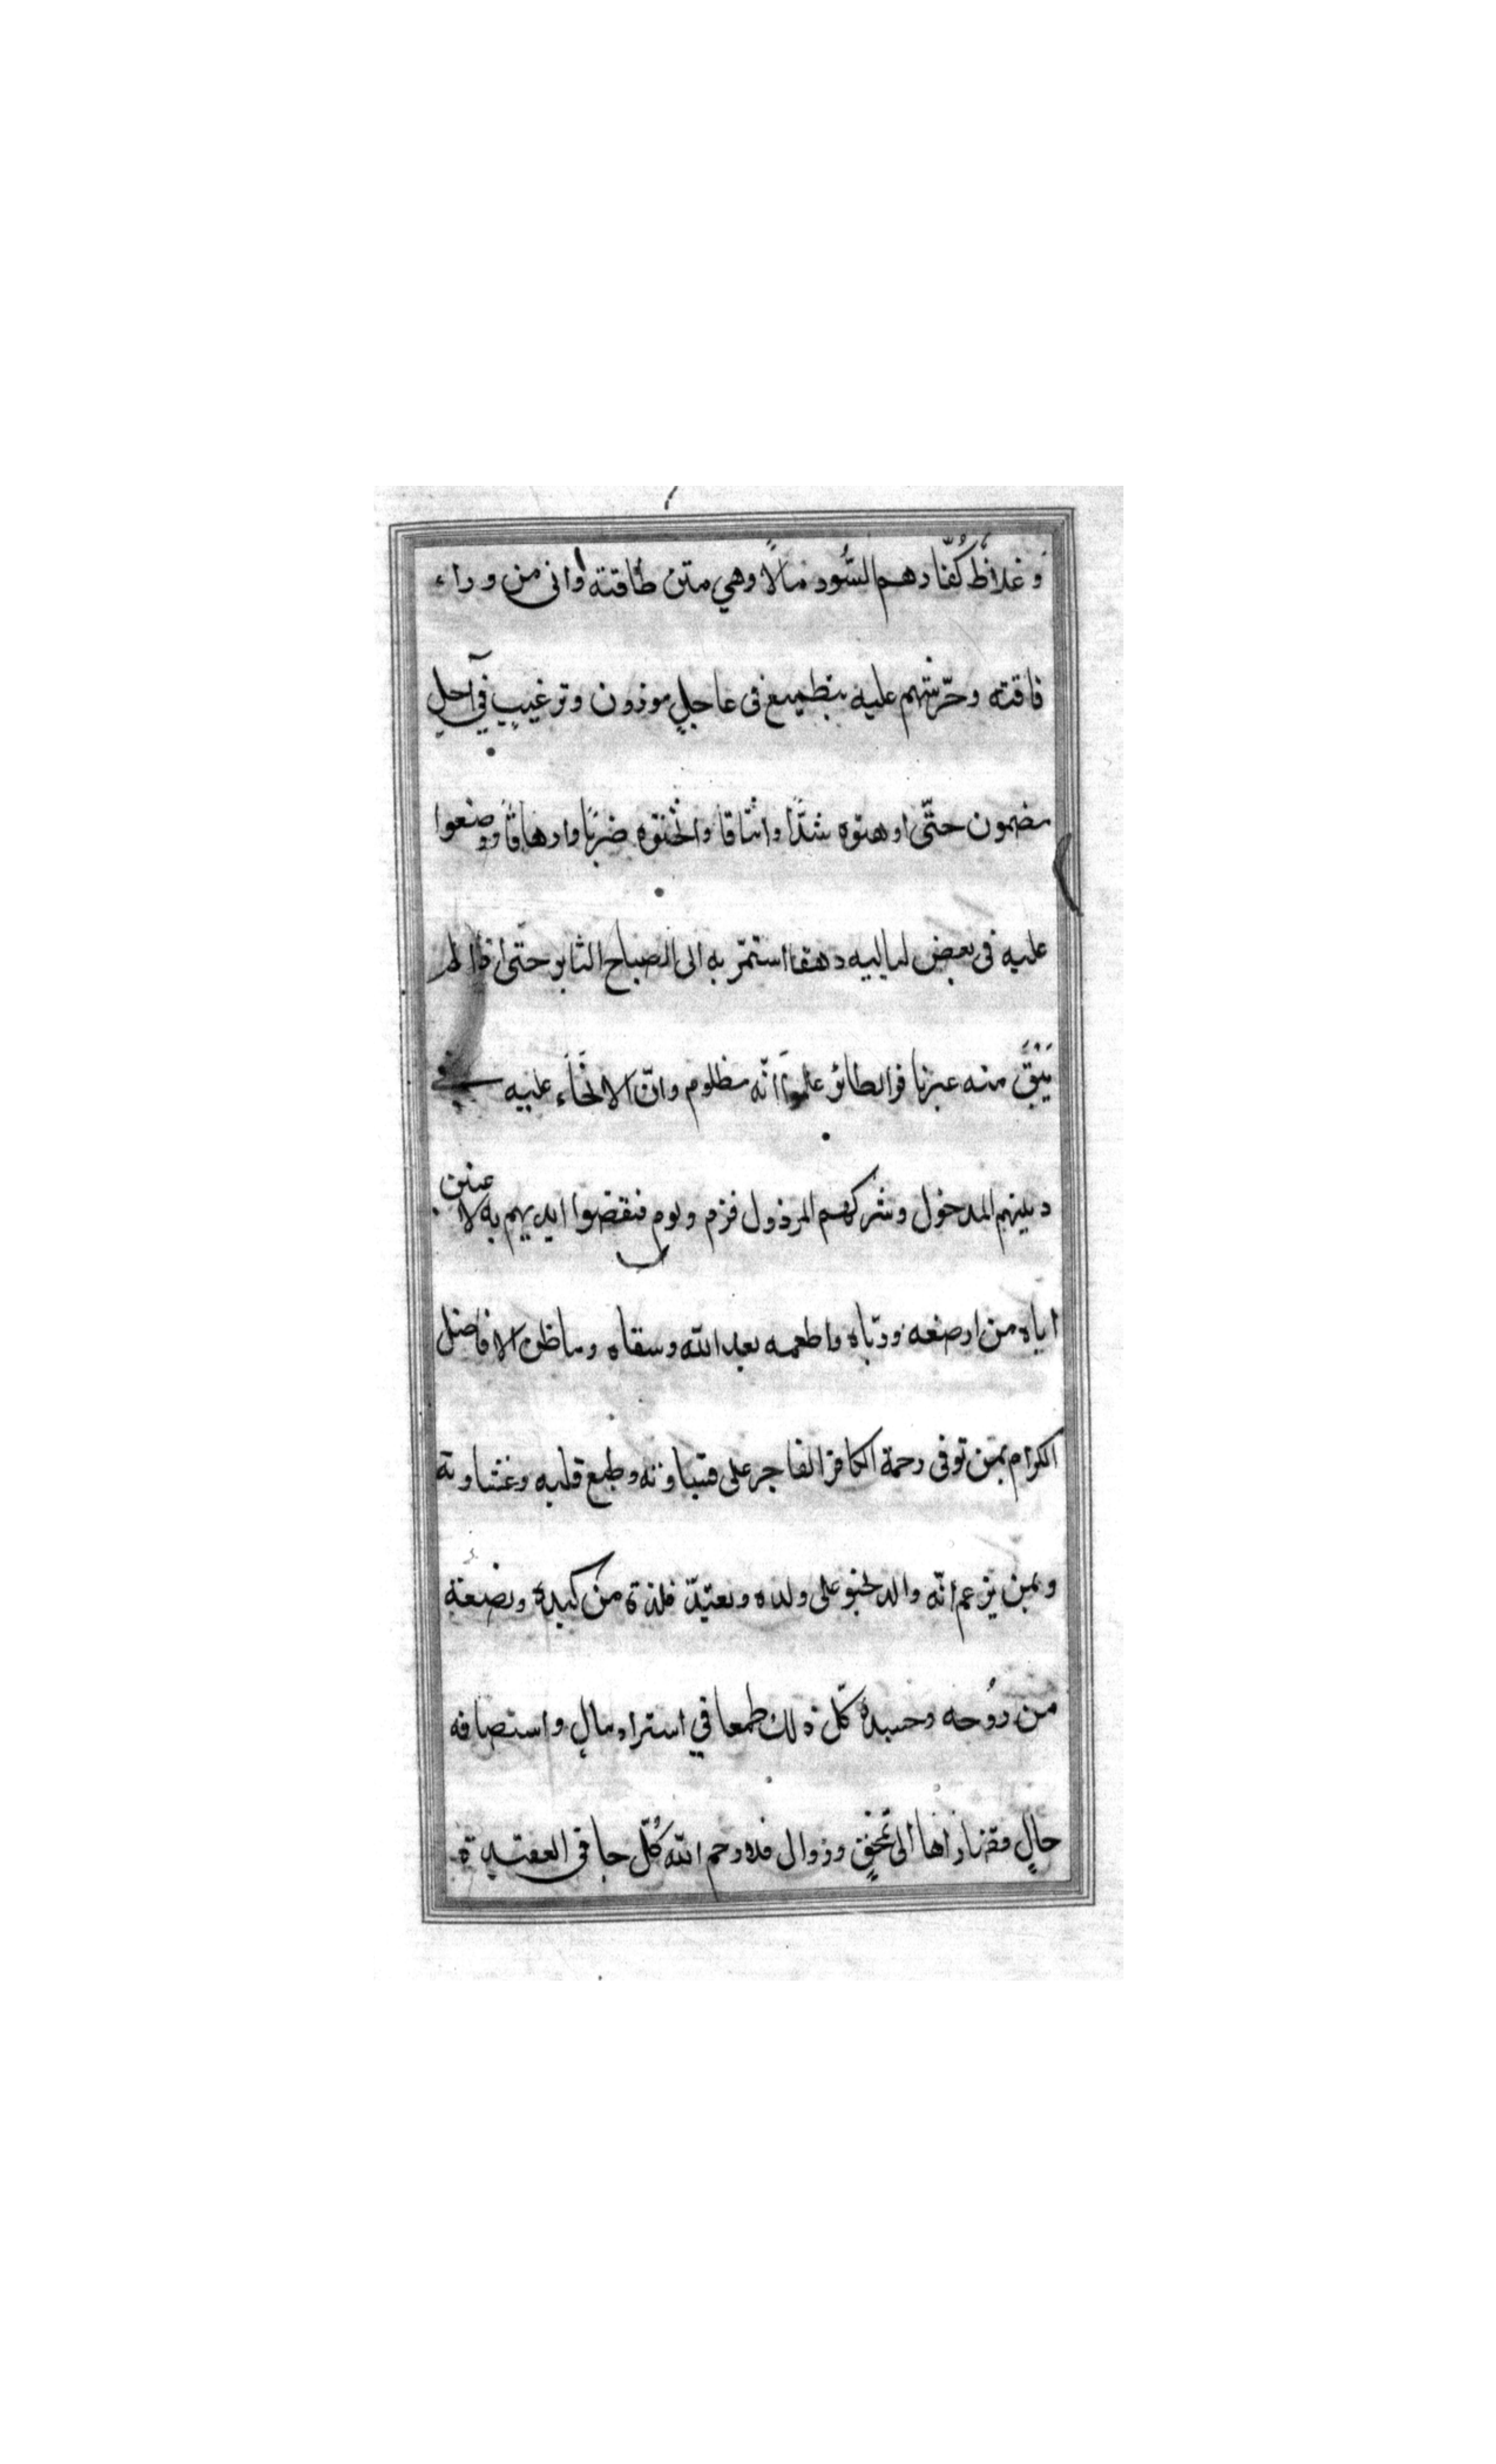 وغلاظُ كُفّارهم السُّود مالًا وهي متن طاقته وانى من وراء
فاقته وحرّشتهم عليه بتطميع فى عاجلٍ موزون وترغيبٍ في آجلٍ
مضمون حتّى اوهنوه شدًّا واثاقا واثخنوه ضربًا وارهاقًا ووضعوا
عليه فى بعض لياليه دهقا استمرّ به الى الصباح حتى اذا لم
يَبْقَ منه عبرنا فر الطائر علموا انّه مظلوم وانّ الانحاء عليه في
دينهم المدخول وشركهم المرذول فزم ولوم فنفضوا ايديهم به لا عن
اباه من ارضعه وربّاه واطعمه بعد الله وسقاه وما ظن الافاضل
الكرام بمن توفى رحمة الكافر الفاجر على قساوته وطبع قلبه وغشاوته
وبمن يزعم انّه والد يحنو على ولده ويعتدّ فلذة من كبده وبضعة
من رُوحه وجسده كلّ ذلك طمعا في استزاد مالٍ واستضافة
حالٍ الى تمحّقٍ وزوال فلا رحم الله كُلّ جافى العقيدة